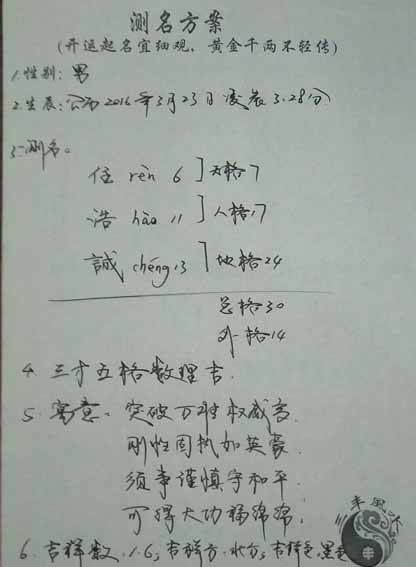 测名方案
(开运起名宜细观，黄金千两不轻传)
1.性别：男
2.生辰：公历2016年3月23日凌晨3.28分
3.测名。
任 rèn 6 ］天格7
浩 hào 11 ］人格17
誠 chéng 13 ］地格24
总格30
外格14
4. 三才五格数理吉.
5. 寓意. 突破万难权威高.
刚性固执如英豪.
须事谨慎守和平.
可得大功福绵绵.
三丰風水
6. 吉祥数.1.6; 吉祥方.北方; 吉祥色.黑色